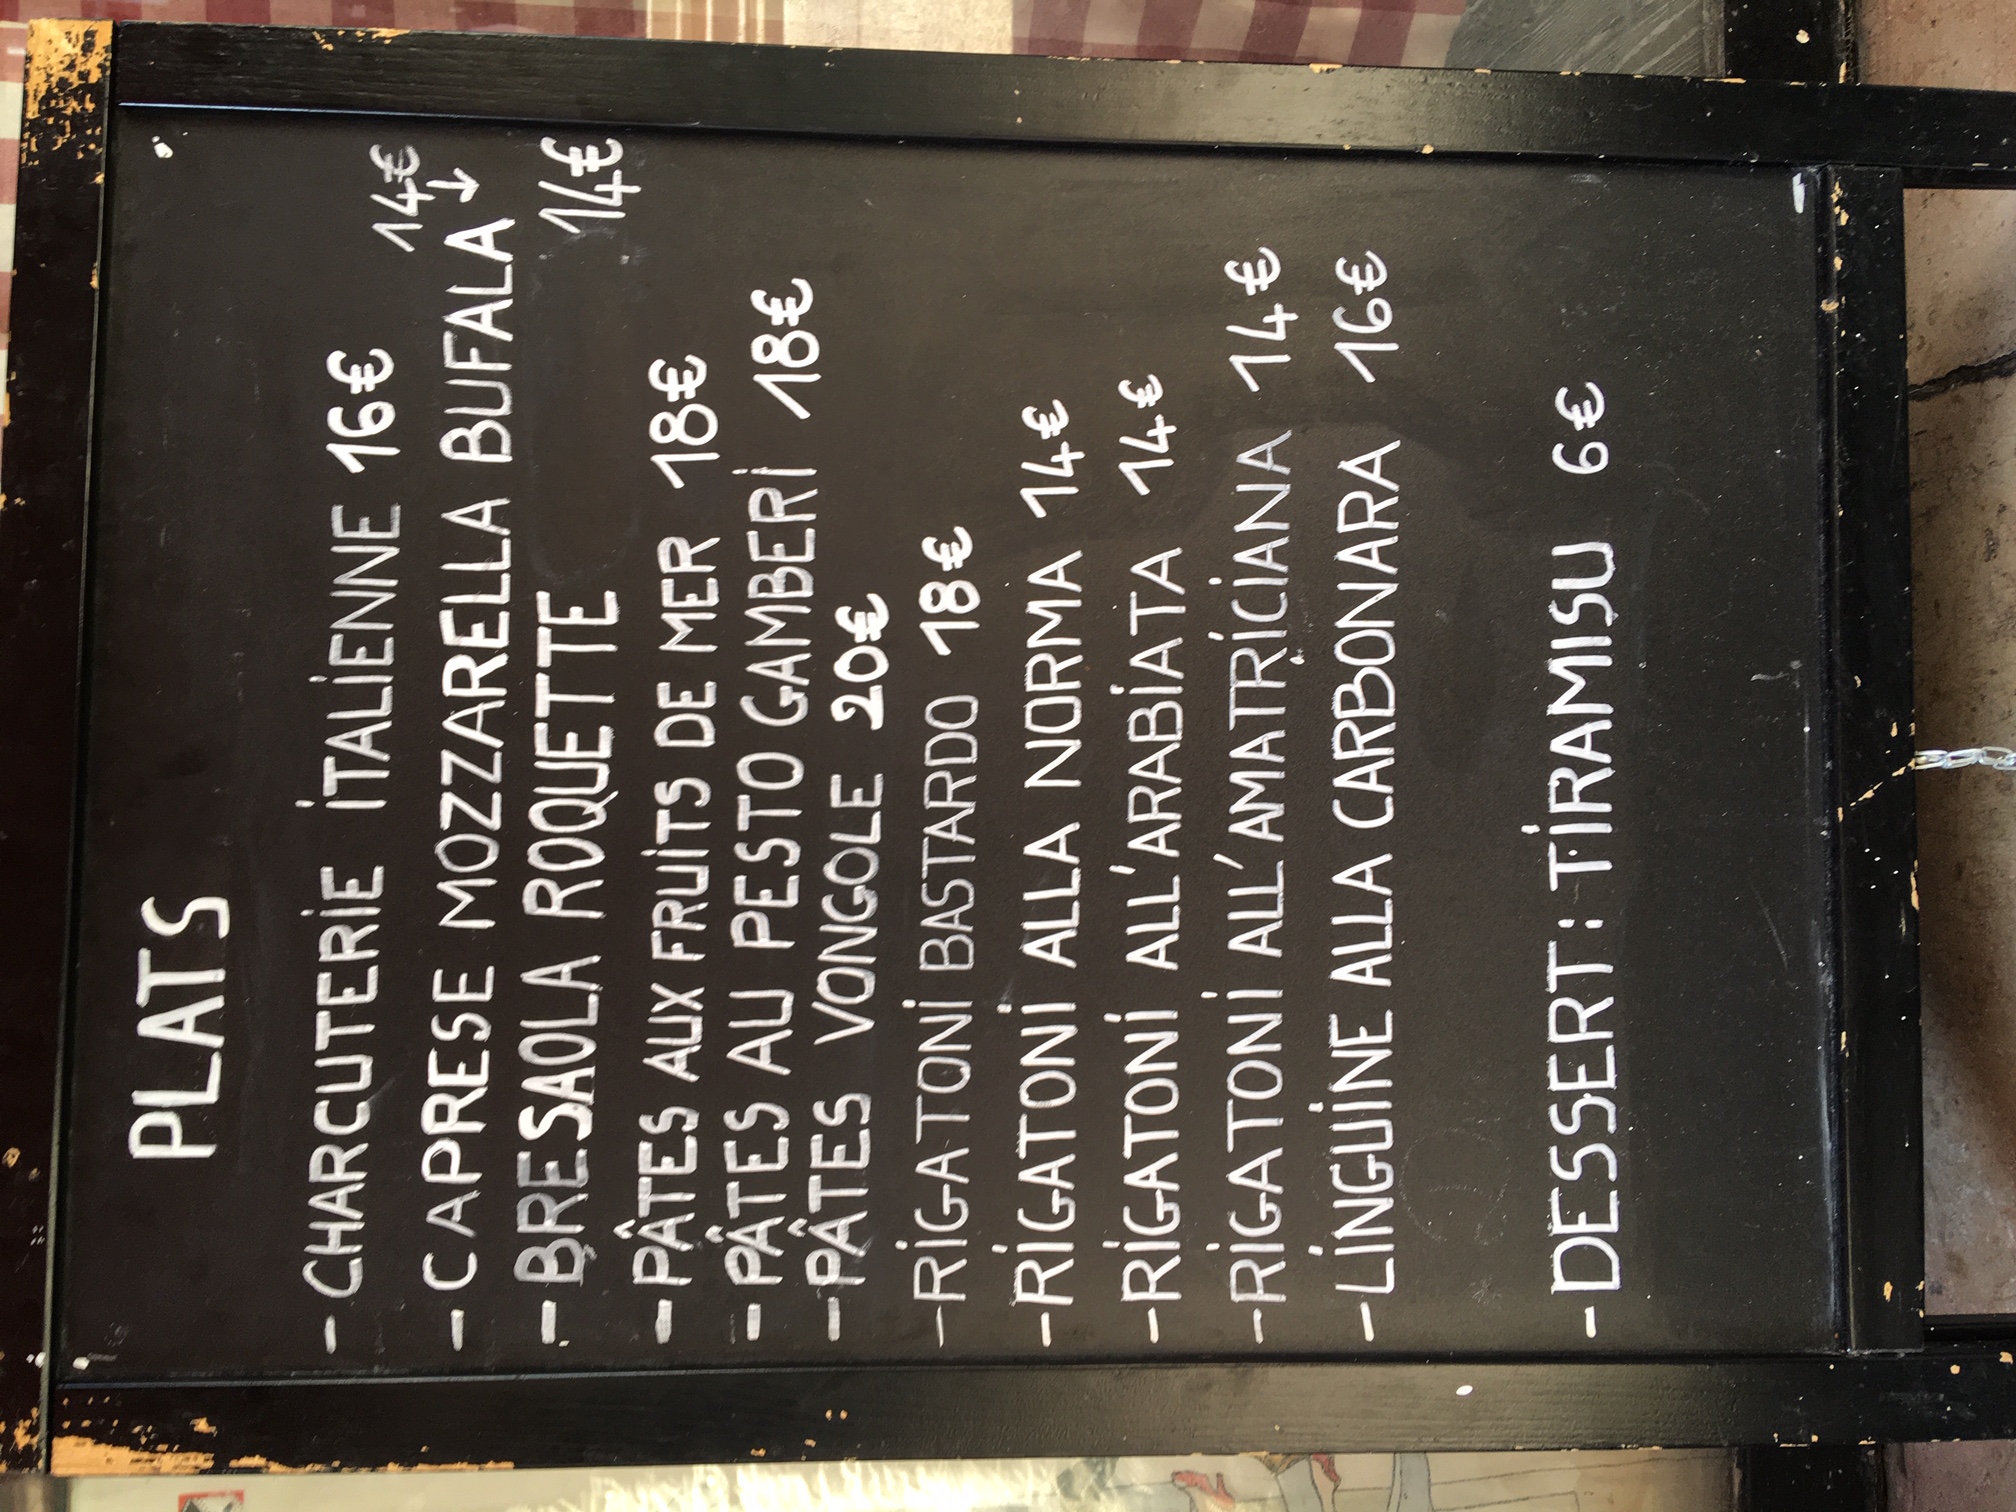 PLATS
- CHARCUTERIE ITALIENNE 16€
14€
- CAPRESE MOZZARELLA BUFALA ↓
- BRESAOLA ROQUETTE 14€
- PÂTES AUX FRUITS DE MER 18€
- PÂTES AU PESTO GAMBERI 18€
- PÂTES VONGOLE 20€
- RIGATONI BASTARDO 18€
- RIGATONI ALLA NORMA 14€
- RIGATONI ALL'ARABIATA 14€
- RIGATONI ALL'AMATRICIANA 14€
- LINGUINE ALLA CARBONARA 16€
- DESSERT : TIRAMISU 6€